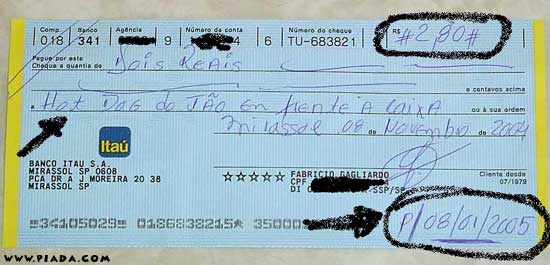 Comp. Banco Agência Número da conta Número do cheque R$
018 341 9 6 TU-683821 #2,80#
Pague por este
Cheque a quantia de Dois Reais
e centavos acima
a Hot Dog do JÃO en frente A Caixa ou à sua ordem
Mirassol 08 de Novembro de 2004
Itaú
BANCO ITAU S.A.
MIRASSOL SP 0608
PCA DR A J MOREIRA 20 38
MIRASSOL SP
☆☆☆☆☆ FABRICIO GAGLIARDO
CPF
DI SSP/SP
Cliente desde
07/1979
34105029 0186838215 35000
P/08/01/2005
WWW.PIADA.COM